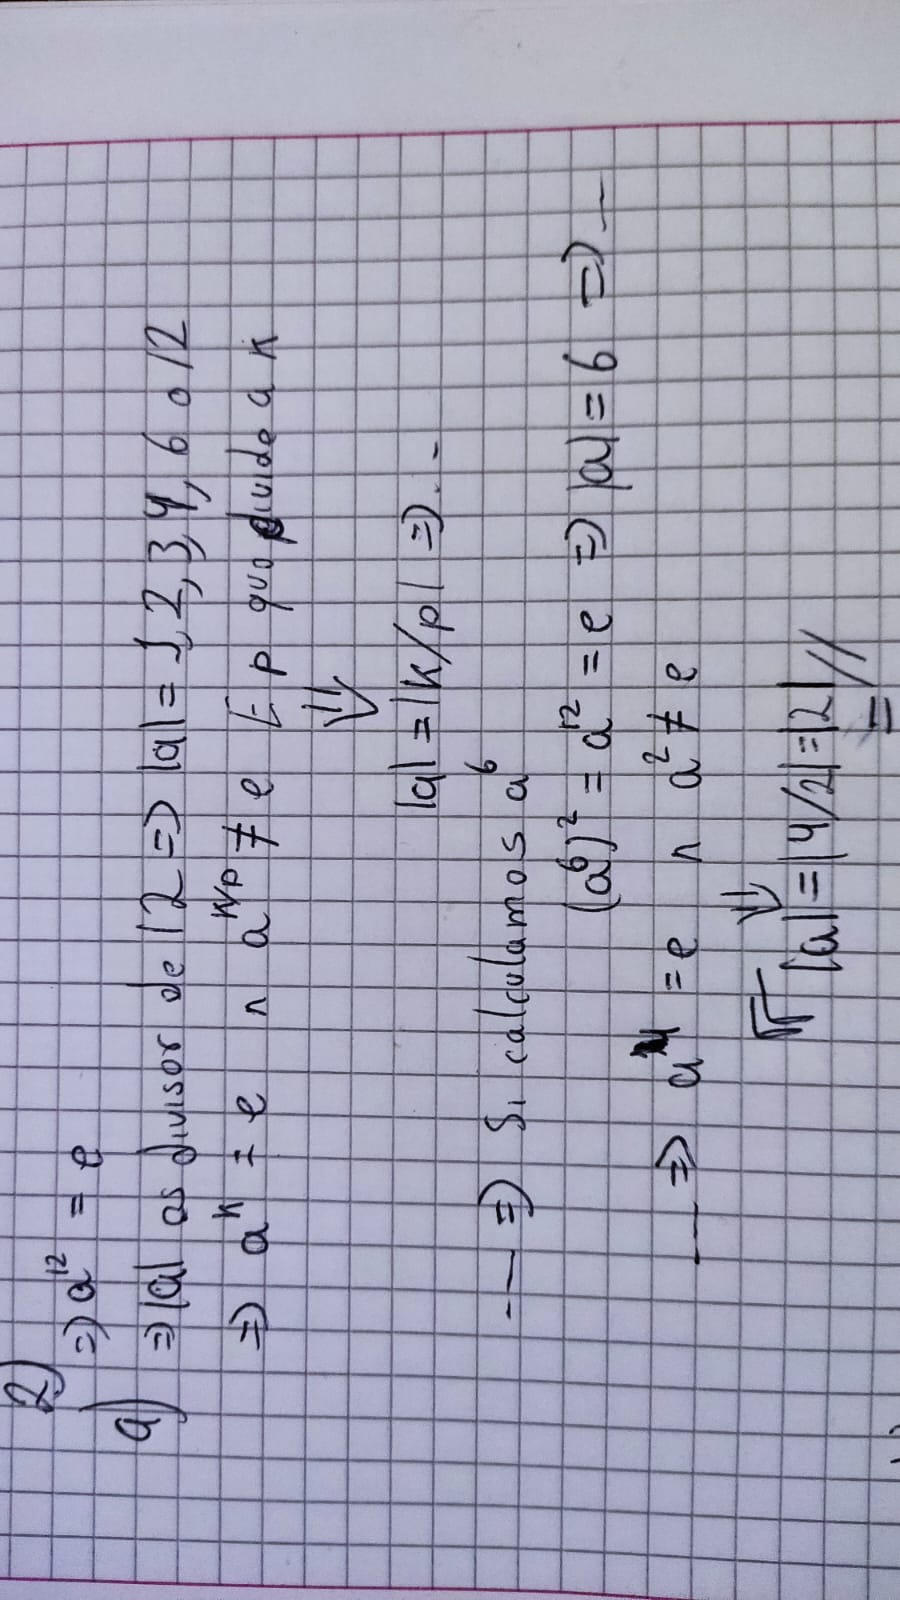 2)
a) => a^12 = e
=> |a| es divisor de 12 => |a| = 1, 2, 3, 4, 6 o 12
=> a^k = e ∧ a^k/p ≠ e [ p que divide a k
⇓
|a| = |k/p| => . -
--- => Si calculamos a^6
(a^6)^2 = a^12 = e => |a| = 6 => --
--- => a^4 = e ∧ a^2 ≠ e
⇓
|a| = |4/2| = |2| //